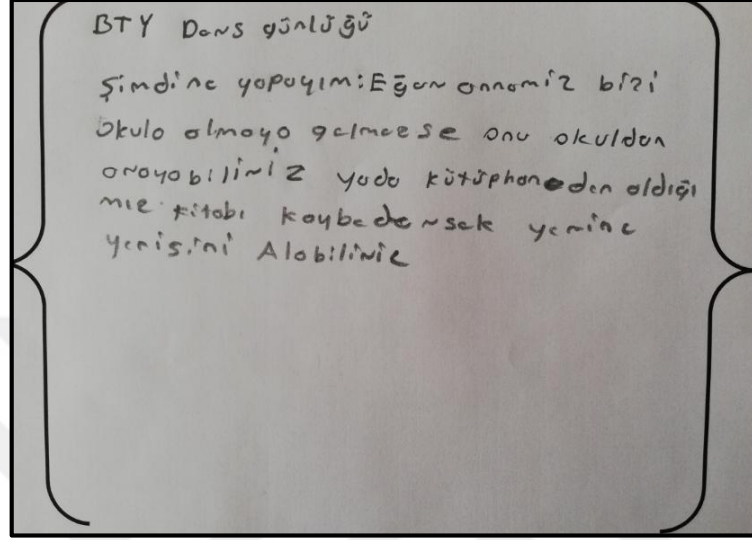 BTY Ders günlüğü
Şimdi ne yapayım: Eğer annemiz bizi
okula almaya gelmeese onu okuldan
arayabiliriz yada kütüphaneden aldığı
mız kitabı kaybedersek yerine
yenisini Alabiliriz